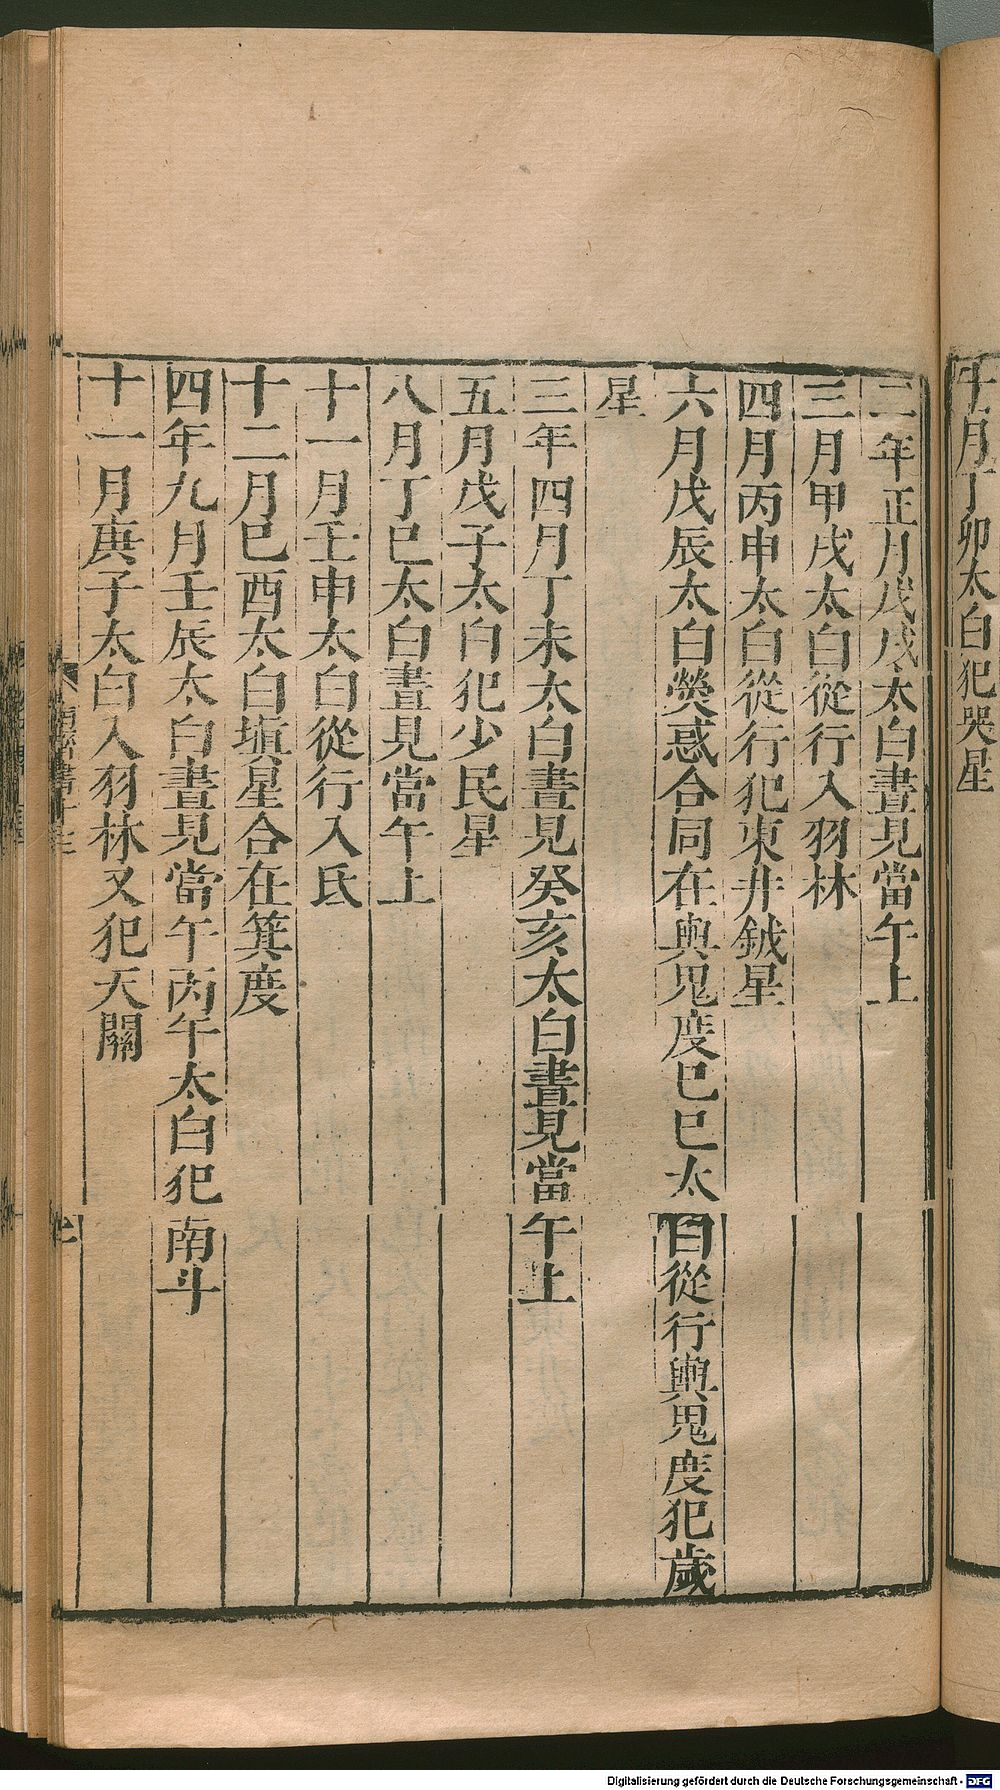 十月丁卯太白犯哭星
二年正月戊戌太白晝見當午上
三月甲戌太白從行入羽林
四月丙申太白從行犯東井鉞星
六月戊辰太白熒惑合同在輿鬼度巳巳太白從行輿鬼度犯歲
星
三年四月丁未太白晝見癸亥太白晝見當午上
五月戊子太白犯少民星
八月丁巳太白晝見當午上
十一月壬申太白從行入氐
十二月巳酉太白塡星合在箕度
四年九月壬辰太白晝見當午丙午太白犯南斗
十一月庚子太白入羽林又犯天關
Digitalisierung gefördert durch die Deutsche Forschungsgemeinschaft - DFG